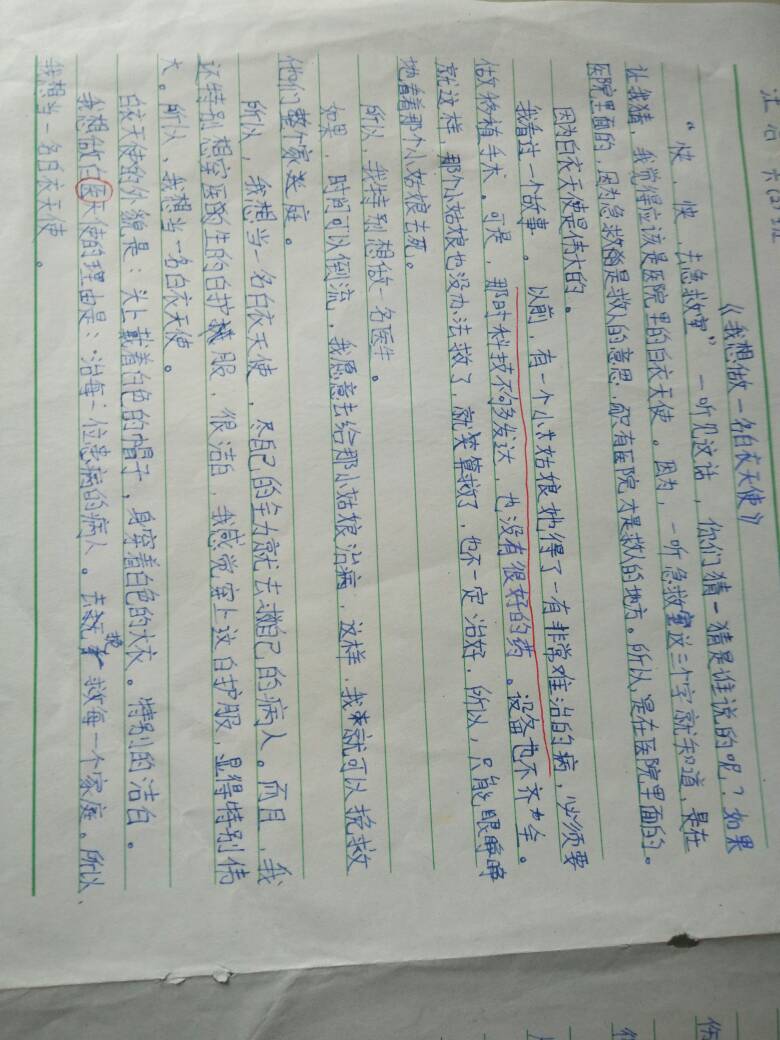 六(2)班
《我想做一名白衣天使》
“快，快，去急救室”一听见这话，你们猜一猜是谁说的呢？如果
让我猜，我觉得应该是医院里的白衣天使。因为，一听急救室这三个字就知道，是在
医院里面的，因为急救就是救人的意思，只有医院才是救人的地方。所以，是在医院里面的。
因为白衣天使是伟大的。
我看过一个故事。以前，有一个小姑娘她得了一有非常难治的病，必须要
做移植手术。可是，那时科技不够发达，也没有很好的药。设备也不齐全。
就这样，那个小姑娘也没办法救了，就算救了，也不一定治好，所以，只能眼睁睁
地看着那个小姑娘去死。
所以，我特别想做一名医生。
如果，时间可以倒流，我愿意去给那小姑娘治病，这样，我就可以挽救
他们整个家庭。
所以，我想当一名白衣天使，尽自己的全力就去救自己的病人。而且，我
还特别想穿医生的白护服，很洁白，我感觉穿上这白护服，显得特别伟
大。所以，我想当一名白衣天使。
白衣天使的外貌是：头上戴着白色的帽子，身穿着白色的大衣。特别的洁白。
我想做白医天使的理由是：治每一位患病的病人。去挽救每一个家庭。所以，
我想当一名白衣天使。